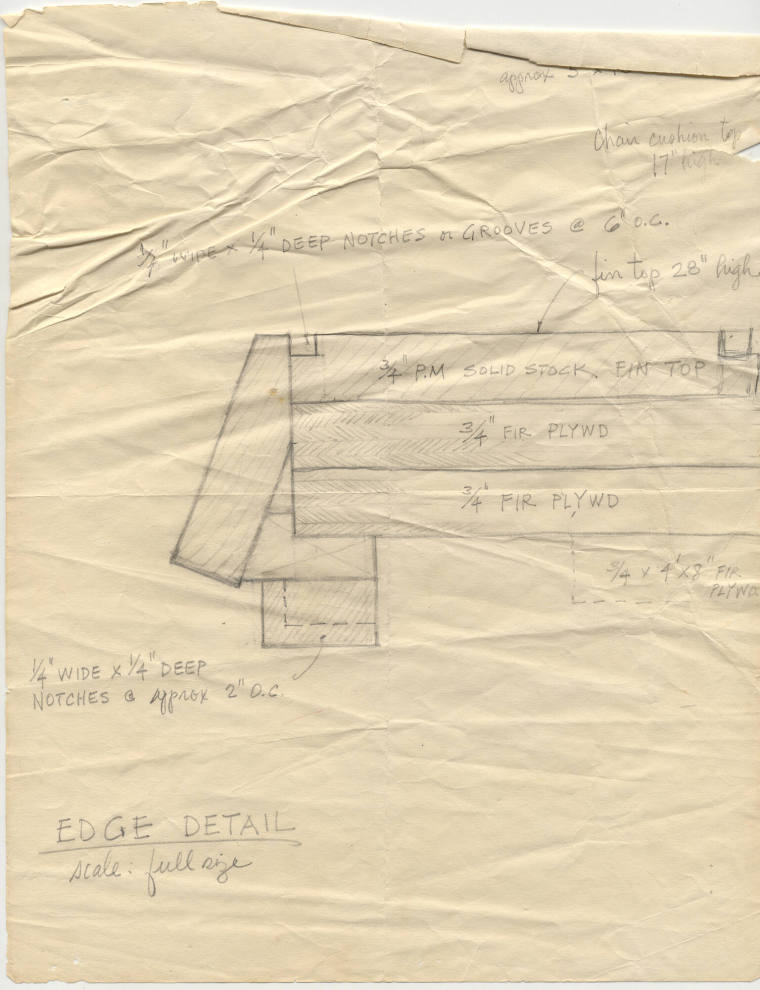 approx
Chair cushion top
17" high
1/4" WIDE x 1/4" DEEP NOTCHES or GROOVES @ 6" O.C.
fin top 28" high
3/4" P.M SOLID STOCK. FIN TOP
3/4" FIR PLYWD
3/4" FIR PLYWD
3/4 x 4' x 8" FIR
PLYWD
1/4" WIDE x 1/4" DEEP
NOTCHES @ approx 2" O.C.
EDGE DETAIL
scale: full size